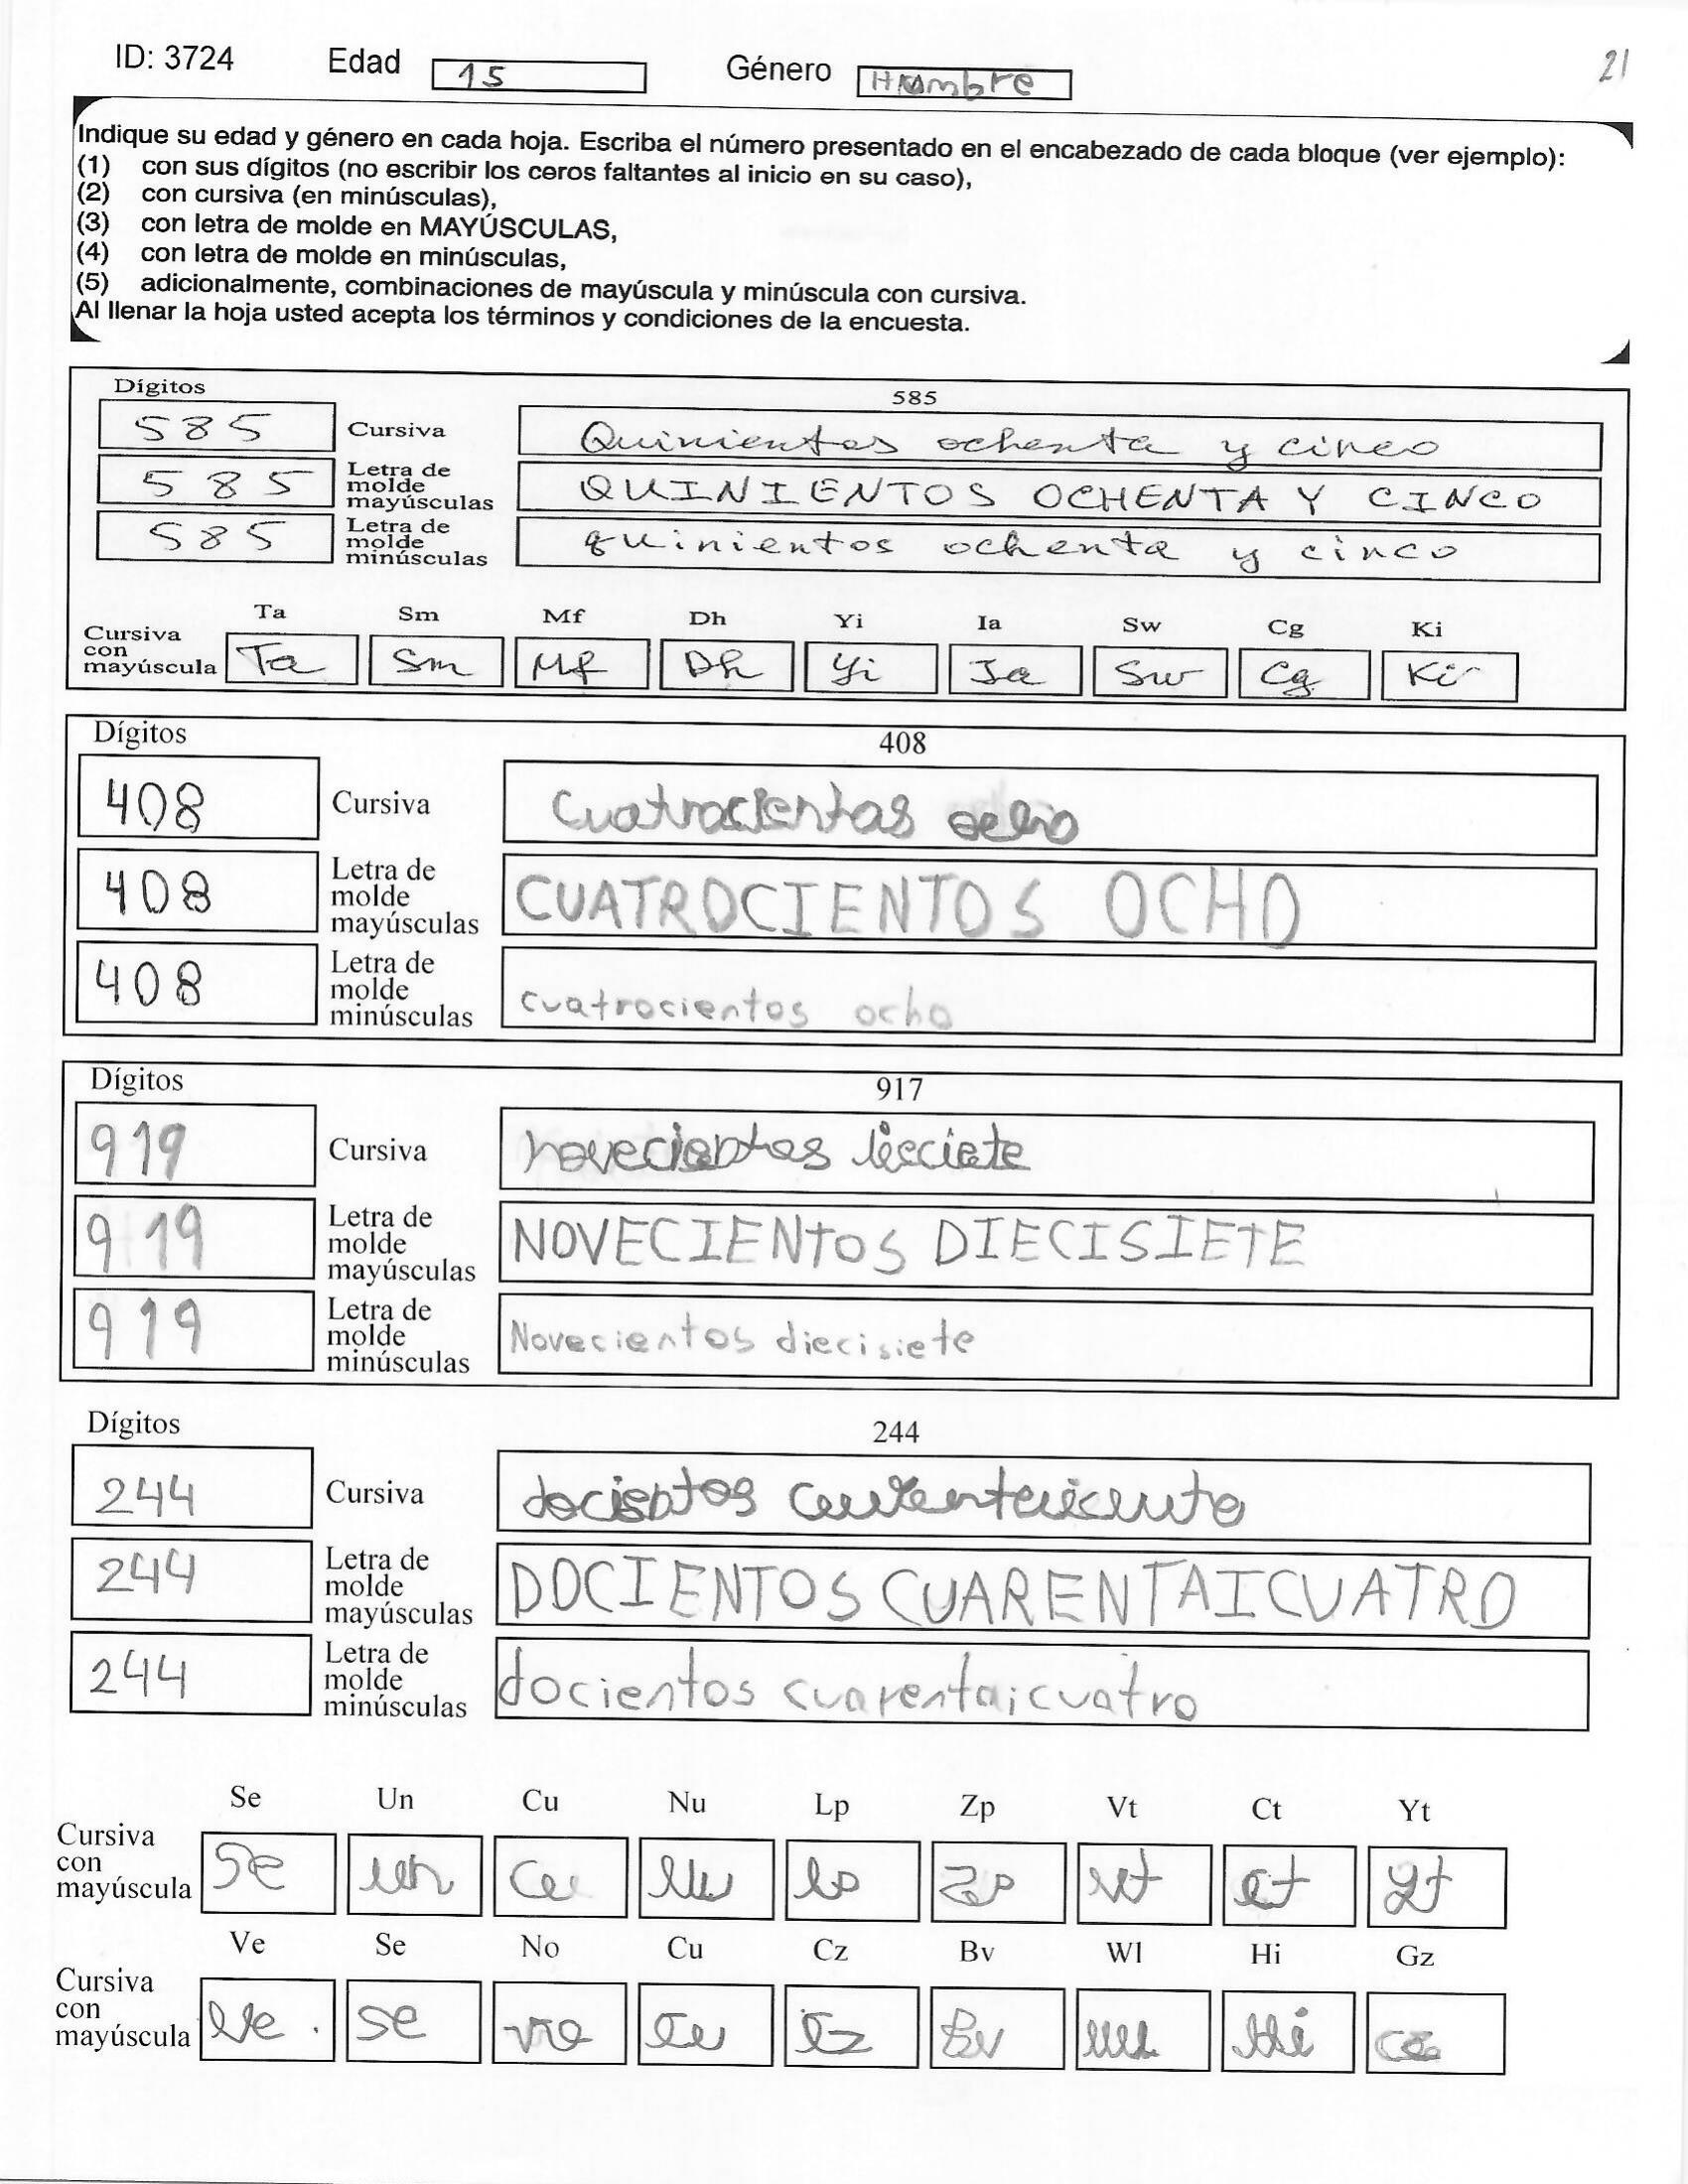 ID: 3724 Edad 15 Género Hombre 21
Indique su edad y género en cada hoja. Escriba el número presentado en el encabezado de cada bloque (ver ejemplo):
(1) con sus dígitos (no escribir los ceros faltantes al inicio en su caso),
(2) con cursiva (en minúsculas),
(3) con letra de molde en MAYÚSCULAS,
(4) con letra de molde en minúsculas,
(5) adicionalmente, combinaciones de mayúscula y minúscula con cursiva.
Al llenar la hoja usted acepta los términos y condiciones de la encuesta.
Dígitos 585
585 Cursiva Quinientos ochenta y cinco
585 Letra de molde mayúsculas QUINIENTOS OCHENTA Y CINCO
585 Letra de molde minúsculas quinientos ochenta y cinco
Ta Sm Mf Dh Yi Ia Sw Cg Ki
Cursiva con mayúscula Ta Sm Mf Dh Yi Ia Sw Cg Ki
Dígitos 408
408 Cursiva Cuatrocientas ocho
408 Letra de molde mayúsculas CUATROCIENTOS OCHO
408 Letra de molde minúsculas cuatrocientos ocho
Dígitos 917
919 Cursiva novecientos
919 Letra de molde mayúsculas NOVECIENTOS DIECISIETE
919 Letra de molde minúsculas Novecientos diecisiete
Dígitos 244
244 Cursiva docientos
244 Letra de molde mayúsculas DOCIENTOS CUARENTAICUATRO
244 Letra de molde minúsculas docientos cuarentaicuatro
Se Un Cu Nu Lp Zp Vt Ct Yt
Cursiva con mayúscula Se Un Cu Nu lp Zp Vt Ct Yt
Ve Se No Cu Cz Bv Wl Hi Gz
Cursiva con mayúscula Ve. Se no Cu Cz Bv Wl Hi